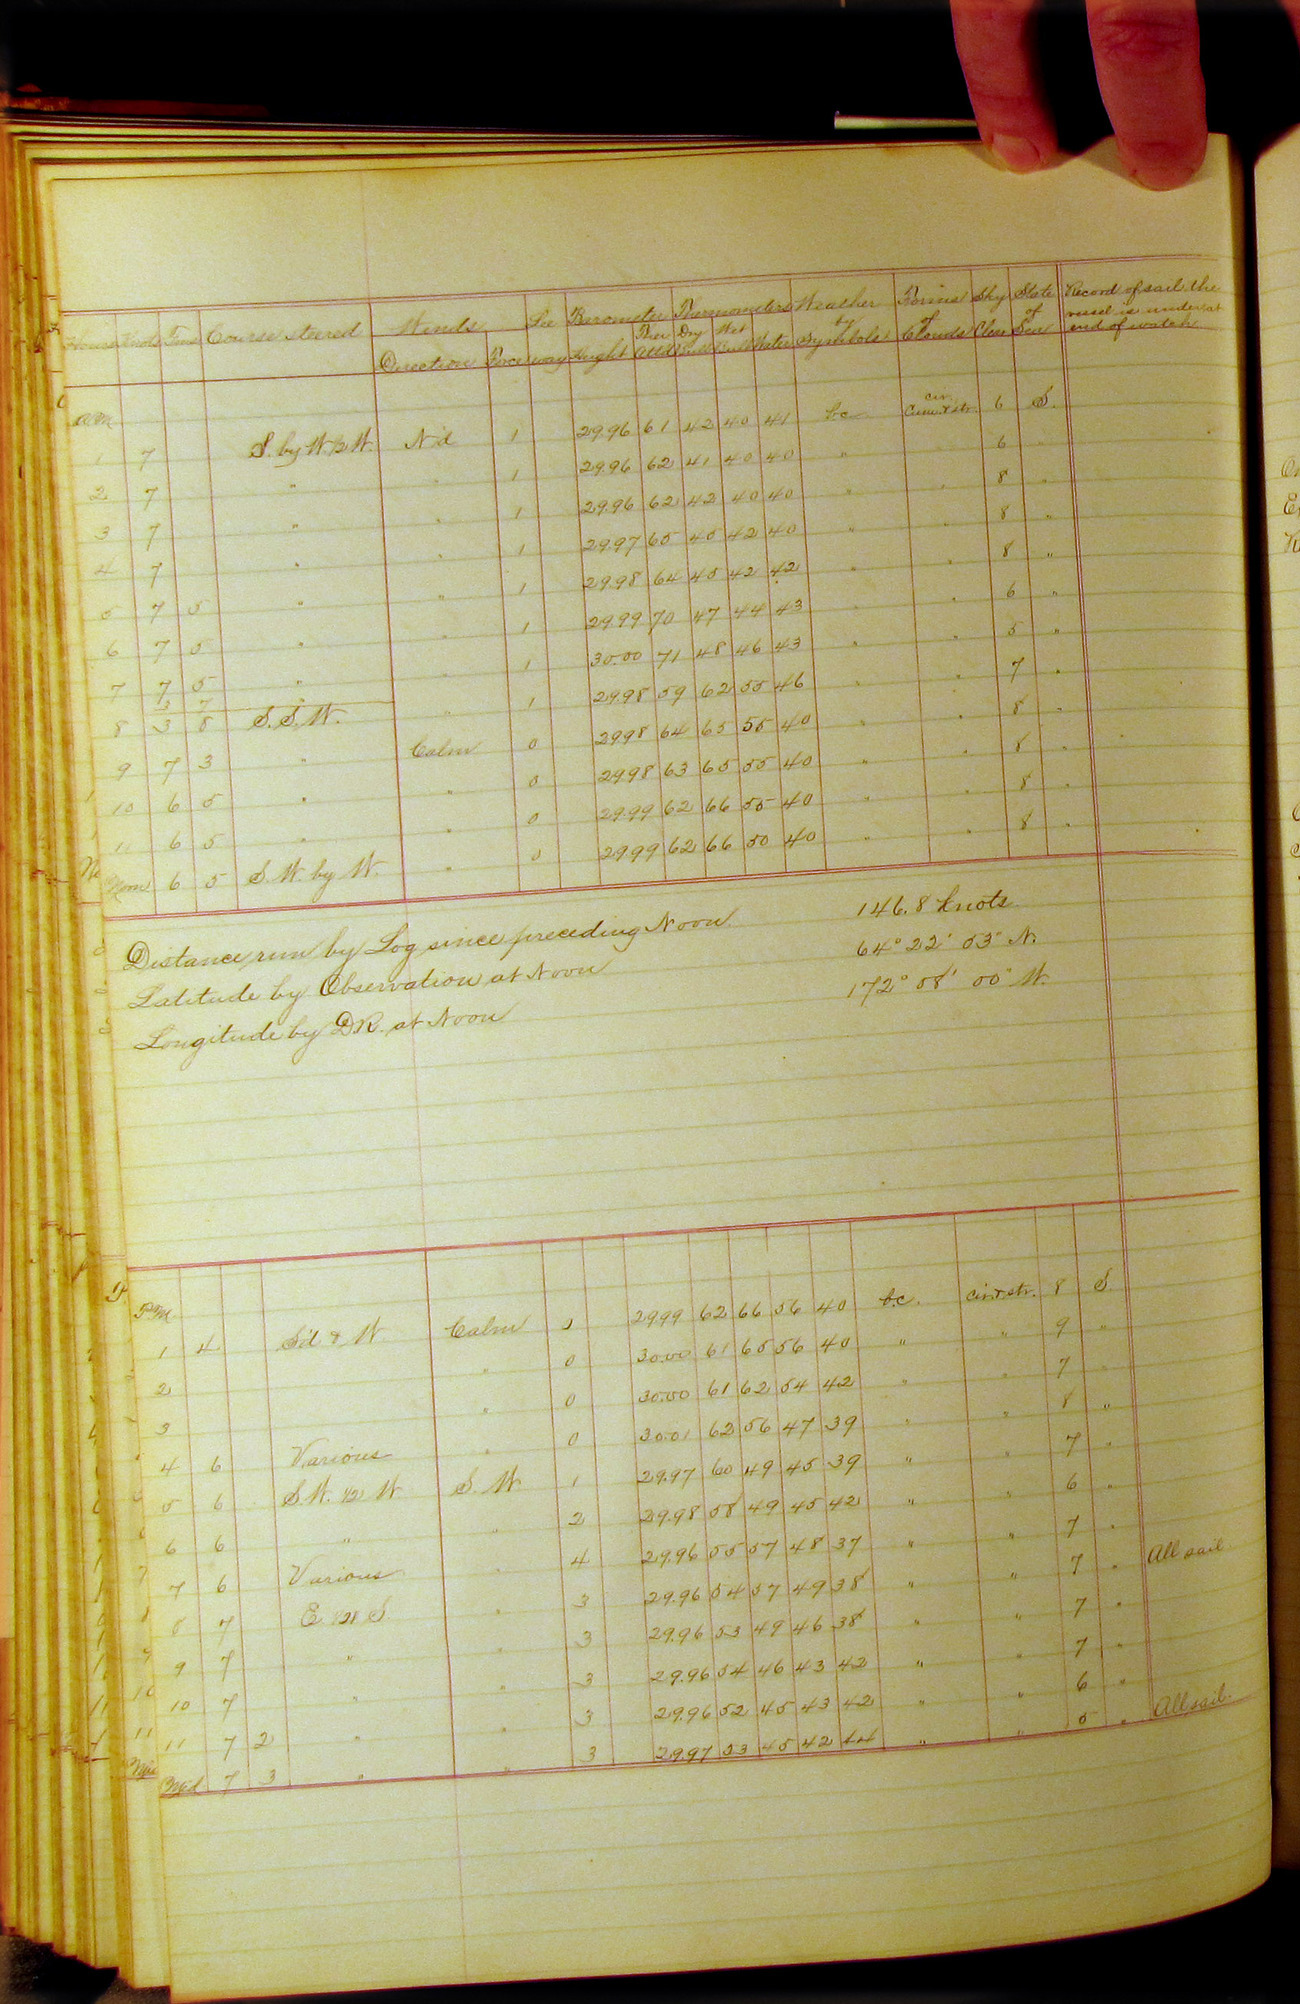 Hours Knots Tens Course steered Winds Direction Force Lee way Barometer Height Ther Attd Thermometers Dry Bulb Wet Bulb Water Weather by Symbols Forms of Clouds Sky Clear State of Sea Record of sail the vessel is under at end of watch
A.M.
1 7 S. by W. 1/2 W. N'd 1 29.96 61 42 40 41 bc cir. Cum. & str. 6 S.
2 7 " " 1 29.96 62 41 40 40 " 6 "
3 7 " " 1 29.96 62 42 40 40 " " 8 "
4 7 " " 1 29.97 65 45 42 40 " " 8 "
5 7 5 " " 1 29.98 64 45 42 42 " " 8 "
6 7 5 " " 1 29.99 70 47 44 43 " " 6 "
7 7 5 " " 1 30.00 71 48 46 43 " " 5 "
3 7
8 3 8 S. S. W. " 1 29.98 59 62 55 46 " " 7 "
9 7 3 " Calm 0 29.98 64 65 55 40 " " 8 "
10 6 5 " " 0 29.98 63 65 55 40 " " 8 "
11 6 5 " " 0 29.99 62 66 55 40 " " 8 "
Noon 6 5 S. W. by W. " 0 29.99 62 66 50 40 " " 8 "
Distance run by Log since preceding Noon 146.8 knots
Latitude by Observation at Noon 64° 22' 53" N.
Longitude by D.R. at Noon 172° 58' 00" W.
P.M.
1 4 S'd & W Calm 0 29.99 62 66 56 40 b.c. cir. & str. 8 S.
2 " 0 30.00 61 65 56 40 " " 9 "
3 " 0 30.00 61 62 54 42 " " 7 "
4 6 Various " 0 30.01 62 56 47 39 " " 8 "
5 6 S. W. 1/2 W S. W 1 29.97 60 49 45 39 " " 7 "
6 6 " " 2 29.98 58 49 45 42 " " 6 "
7 6 Various " 4 29.96 55 57 48 37 " " 7 "
8 7 E. 1/2 S " 3 29.96 54 57 49 38 " " 7 " All sail
9 7 " " 3 29.96 53 49 46 38 " " 7 "
10 7 " " 3 29.96 54 46 43 42 " " 7 "
11 7 2 " " 3 29.96 52 45 43 42 " " 6 "
Mid 7 3 " " 3 29.97 53 45 42 44 " " 5 " All sail.